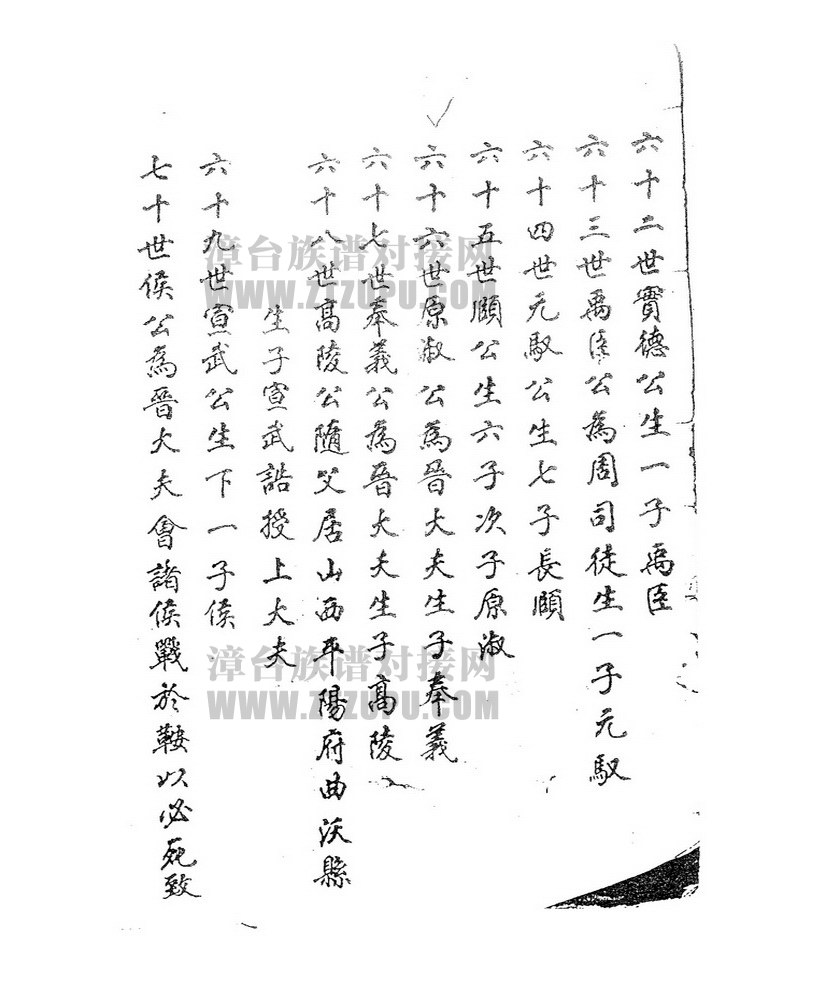 六十二世實德公生一子禹臣
六十三世禹臣公為周司徒生一子元馭
六十四世元馭公生七子長頤
六十五世頤公生六子次子原淑
六十六世原淑公為晉大夫生子奉義
六十七世奉義公為晉大夫生子高陵
六十八世高陵公隨父居山西平陽府曲沃縣
生子宣武誥授上大夫
六十九世宣武公生下一子侯
七十世侯公為晉大夫會諸侯戰於鞍以必死致
漳台族谱对接网
WWW.ZTZUPU.COM
漳台族谱对接网
WWW.ZTZUPU.COM